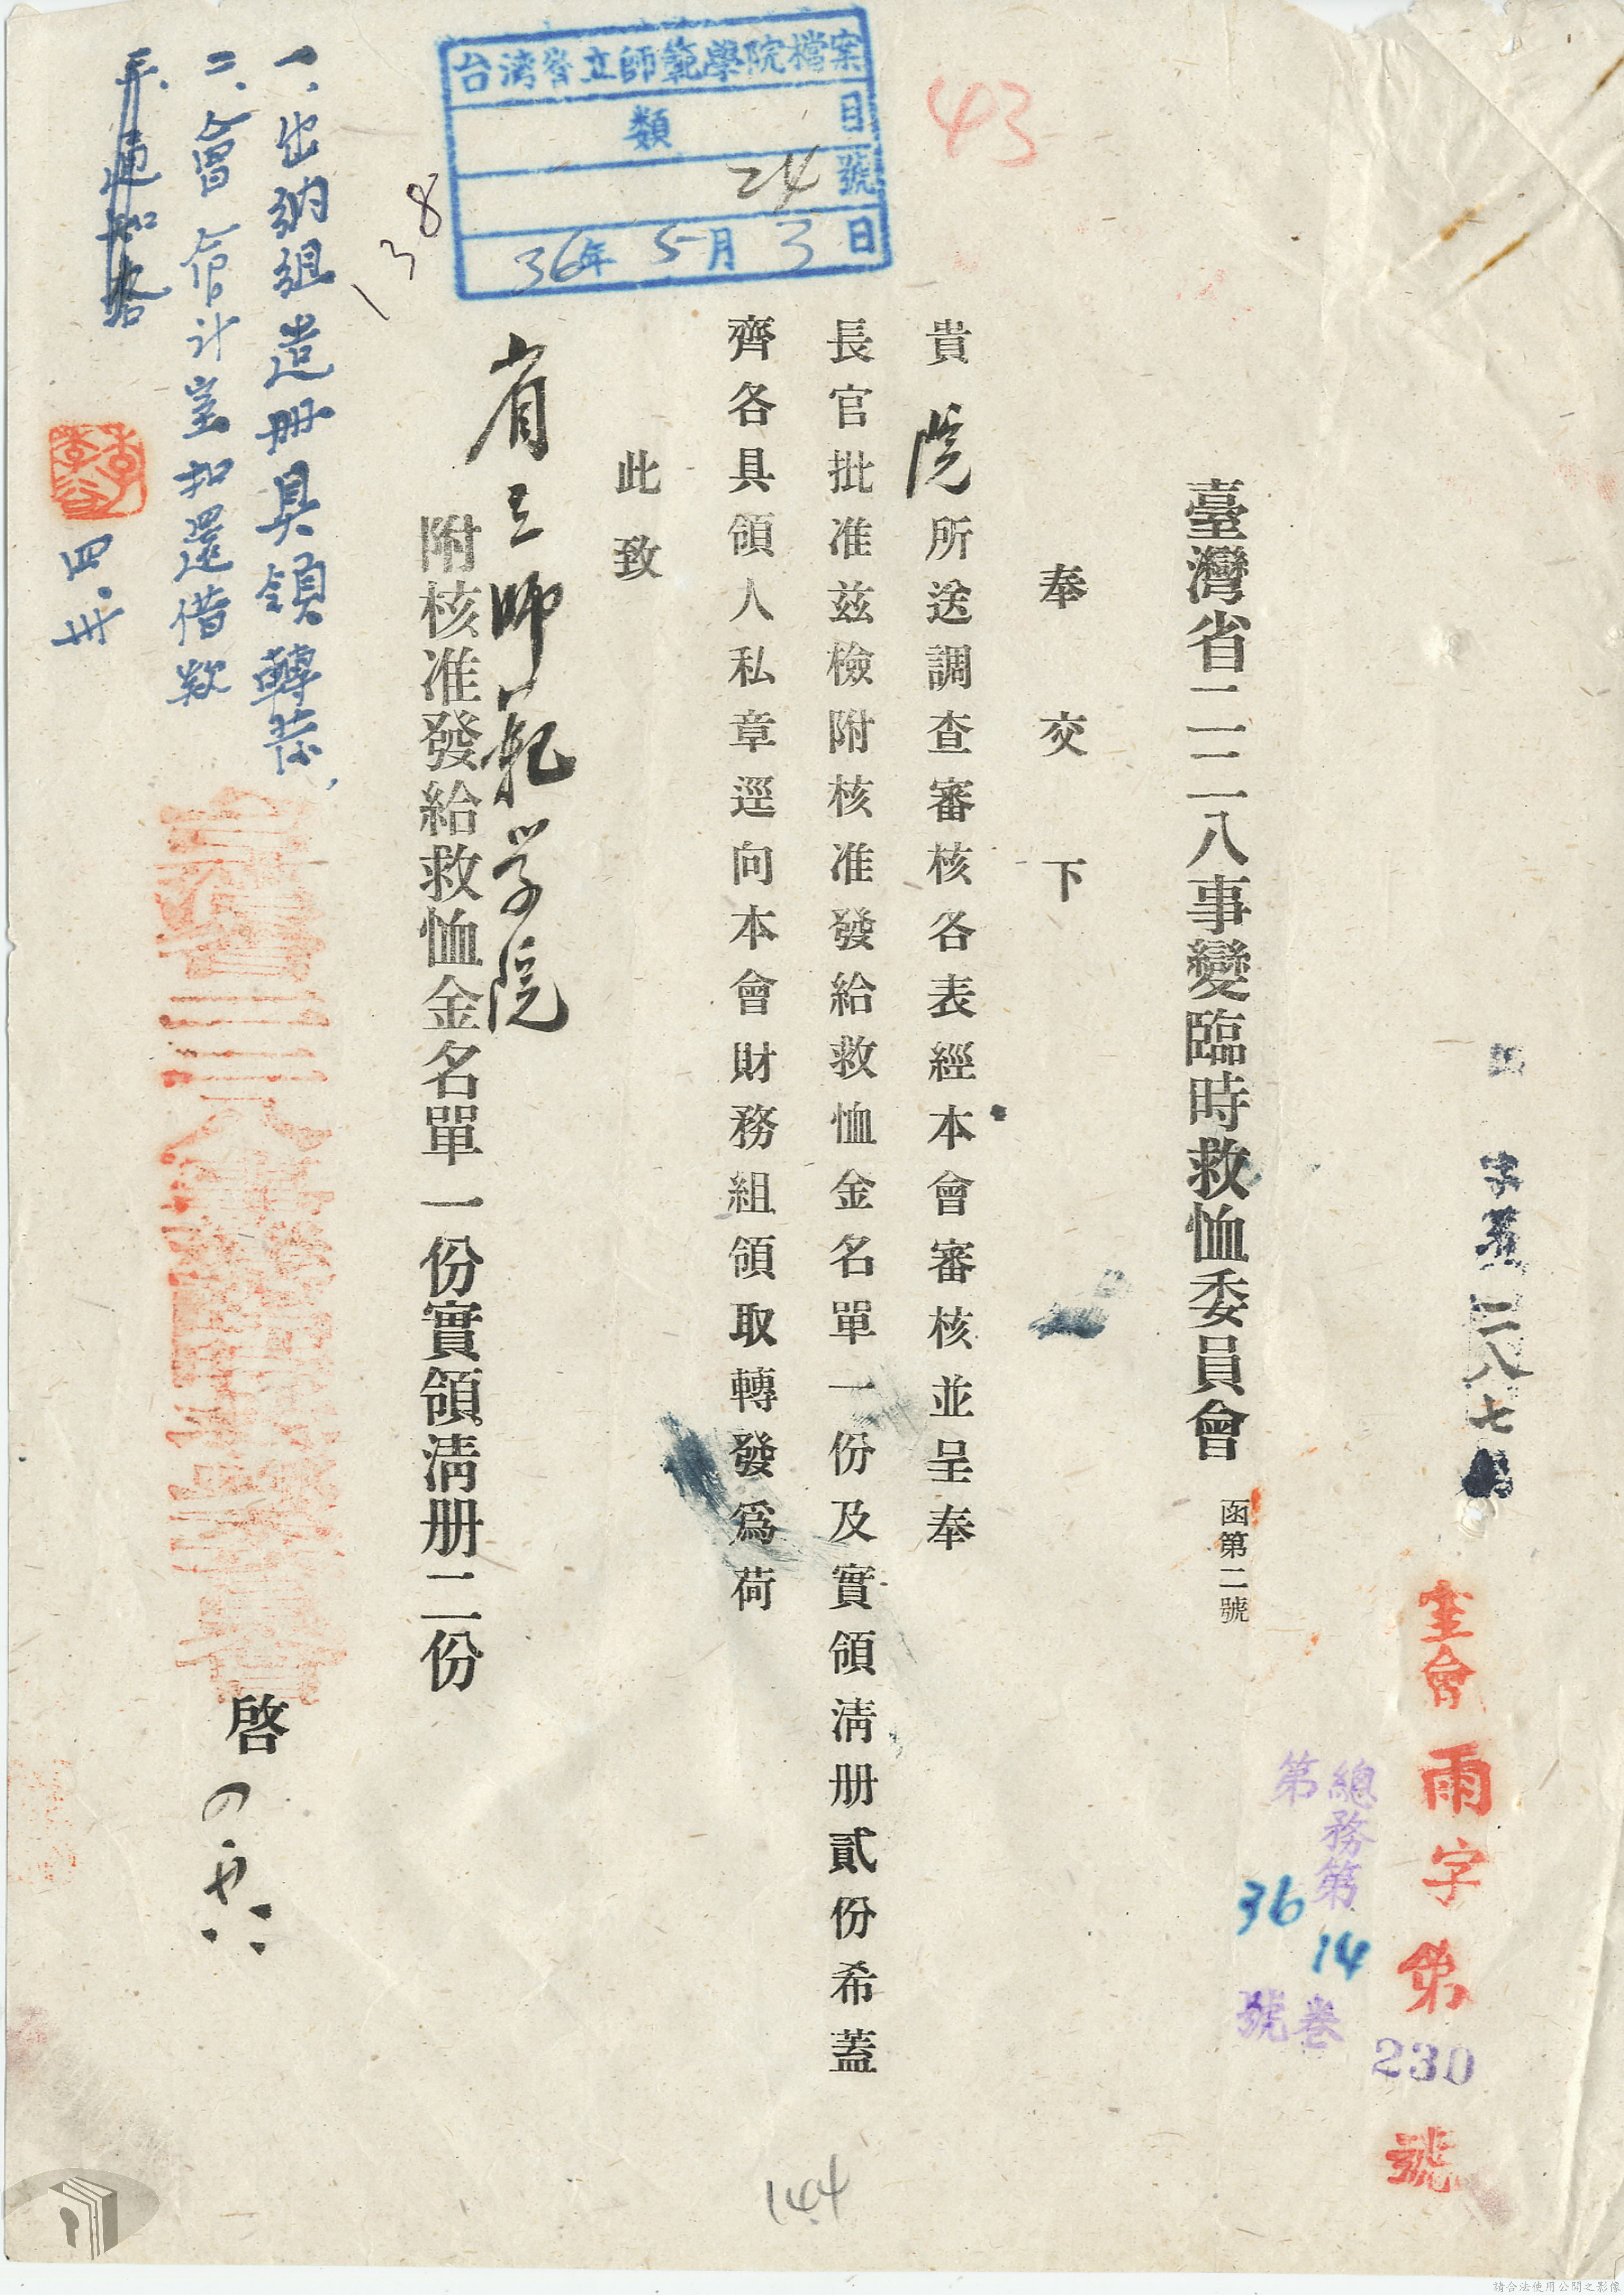 字第二八七號
室會雨字第230號
總務第
第
36
14
卷
號
臺灣省二二八事變臨時救恤委員會 函第二號
奉交下
貴院所送調查審核各表經本會審核並呈奉
長官批准茲檢附核准發給救恤金名單一份及實領清册貳份希蓋
齊各具領人私章逕向本會財務組領取轉發為荷
此致
省立師範学院
附核准發給救恤金名單一份實領清册二份
啓
43
台灣省立師範學院檔案
類 目
24 號
36年 5月 3日
138
一、出納組造册具領轉發、
二、會會计室扣還借款
四.卅
144
請合法使用公開之影像